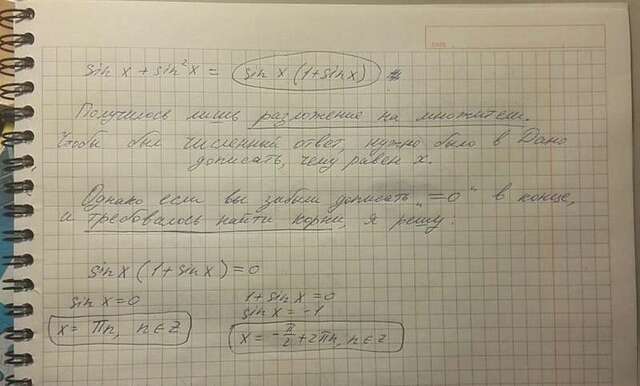 sin x + sin²x = sin x (1+sin x)
Получилось лишь разложение на множители.
Чтобы был численный ответ, нужно было в Дано
дописать, чему равен x.
Однако если вы забыли дописать „=0" в конце,
и требовалось найти корни, я решу:
sin x (1+sin x)=0
sin x=0
x= πn, n∈Z
1+sin x=0
sin x=-1
x=-π/2+2πn, n∈Z